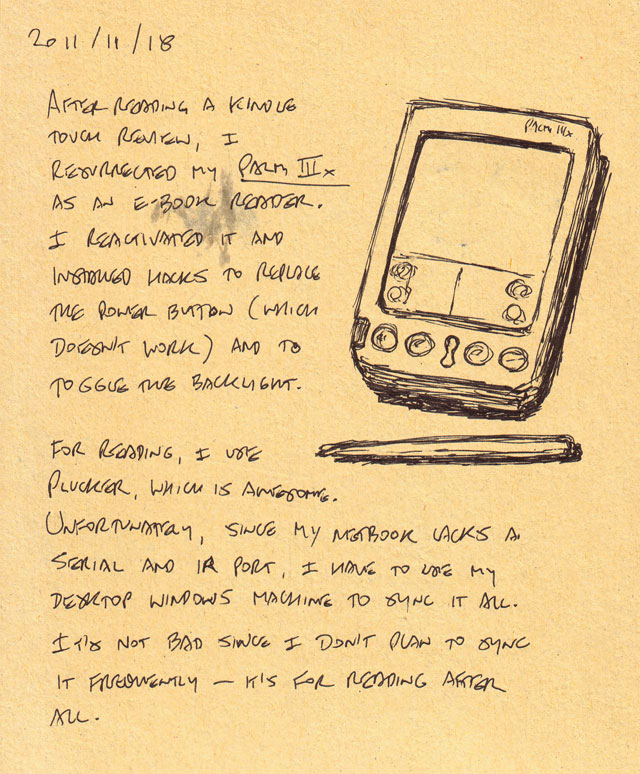 2011/11/18
AFTER READING A KINDLE
TOUCH REVIEW, I
RESURRECTED MY PALM IIIx
AS AN E-BOOK READER.
I REACTIVATED IT AND
INSTALLED HACKS TO REPLACE
THE POWER BUTTON (WHICH
DOESN'T WORK) AND TO
TOGGLE THE BACKLIGHT.
PALM IIIx
FOR READING, I USE
PLUCKER, WHICH IS AWESOME.
UNFORTUNATELY, SINCE MY NETBOOK LACKS A
SERIAL AND IR PORT, I HAVE TO USE MY
DESKTOP WINDOWS MACHINE TO SYNC IT ALL.
IT'S NOT BAD SINCE I DON'T PLAN TO SYNC
IT FREQUENTLY — IT'S FOR READING AFTER
ALL.